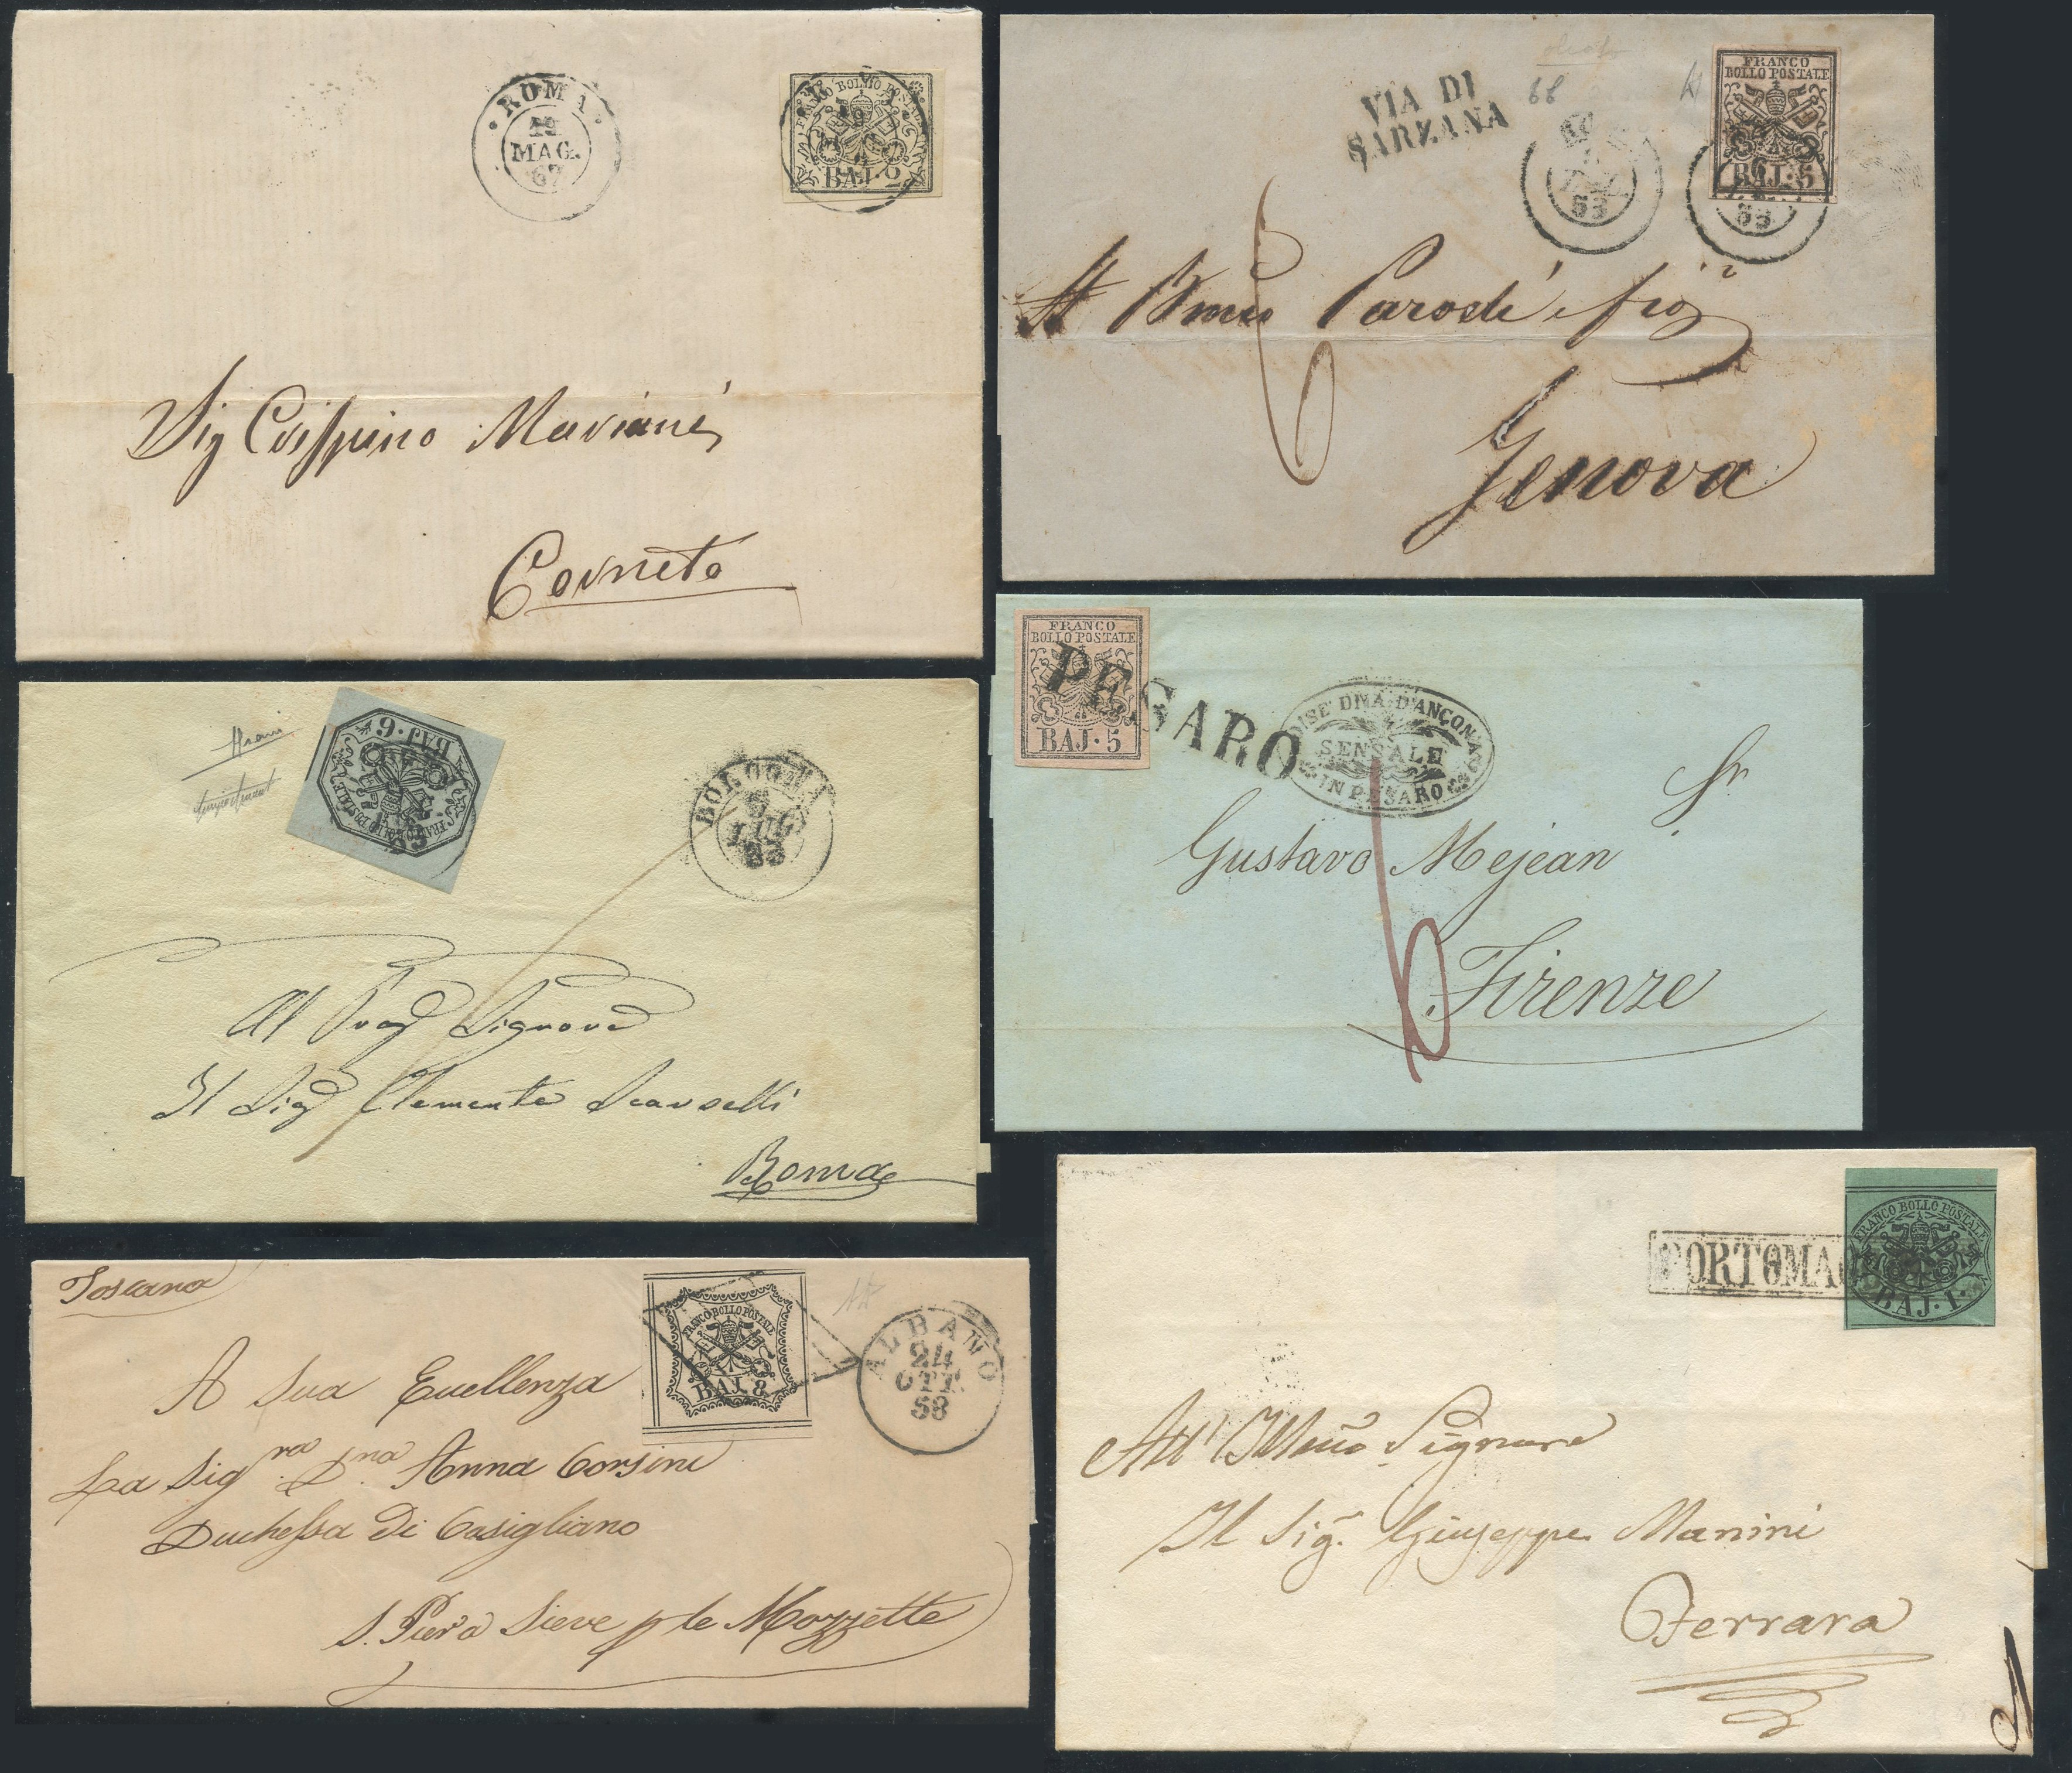 ROMA
19
MAG.
67
BAJ. 2
Sig Crispino Mariani
Corneto
VIA DI
SARZANA
68
FRANCO
BOLLO POSTALE
BAJ. 5
53
53
6
Parodi e
Genova
BAJ. 6
FRANCO BOLLO POSTALE
BOLOGNA
LUG
Al Signore
Il Sig Clemente
Roma
FRANCO
BOLLO POSTALE
BAJ. 5
PESARO
D'ANCONA
SENSALE
IN PESARO
6
Sr
Gustavo Mejean
Firenze
Toscana
FRANCO BOLLO POSTALE
BAJ. 8
ALBANO
24
OTT.
58
A Sua Eccellenza
La Sigra Dna Anna Corsini
Duchessa Di Casigliano
S. Piero Sieve p le Mozzette
PORTOMAG
FRANCO BOLLO POSTALE
BAJ. 1.
All' Illmo Signore
Il Sig. Giuseppe Manini
Ferrara